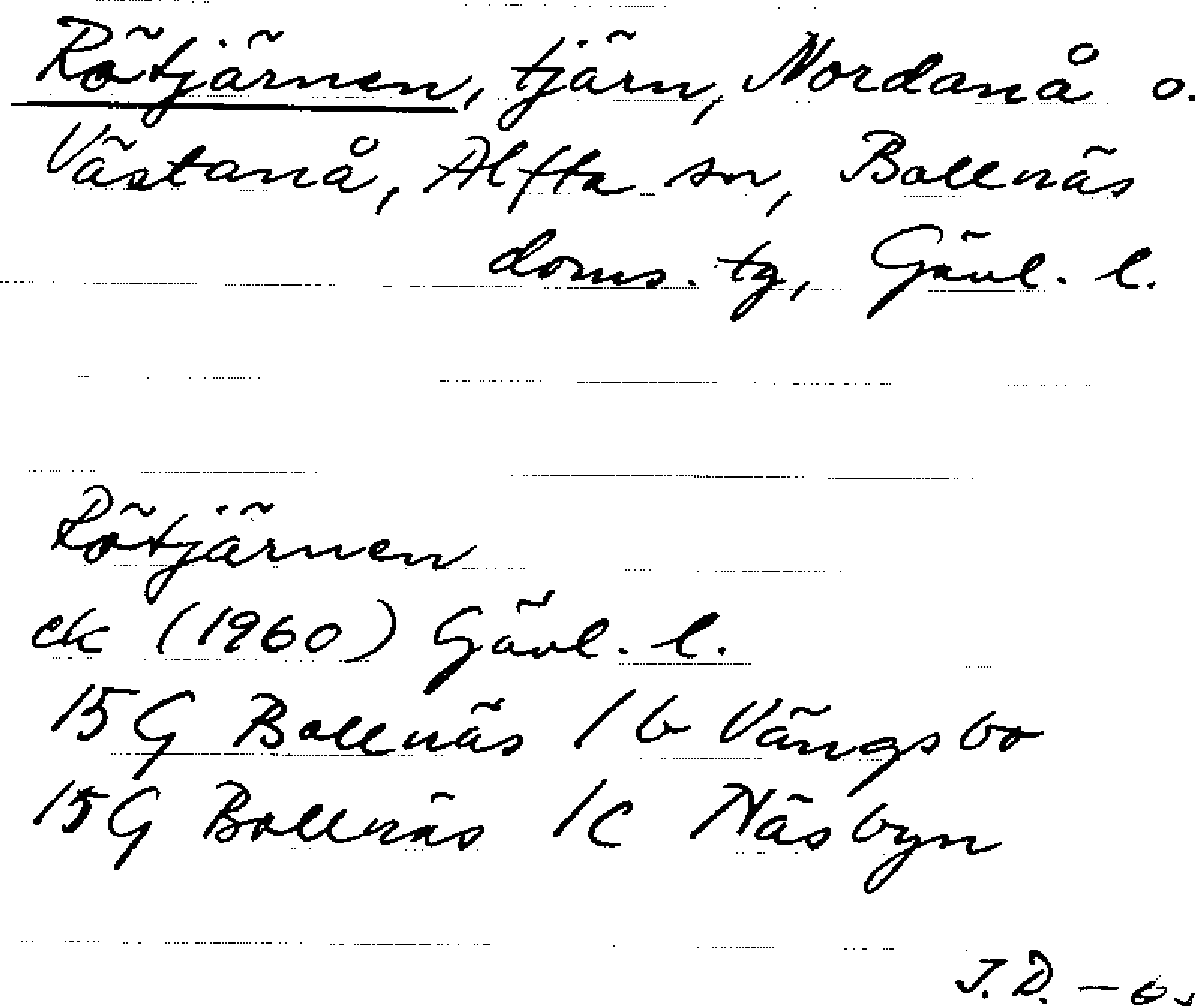 Rötjärnen, tjärn, Nordanå o.
Västanå, Alfta sn, Bollnäs
doms. tg, Gävl. l.
Rötjärnen
ek (1960) Gävl. l.
15G Bollnäs 1b Vängsbo
15G Bollnäs 1c Näsbyn
J.D. -